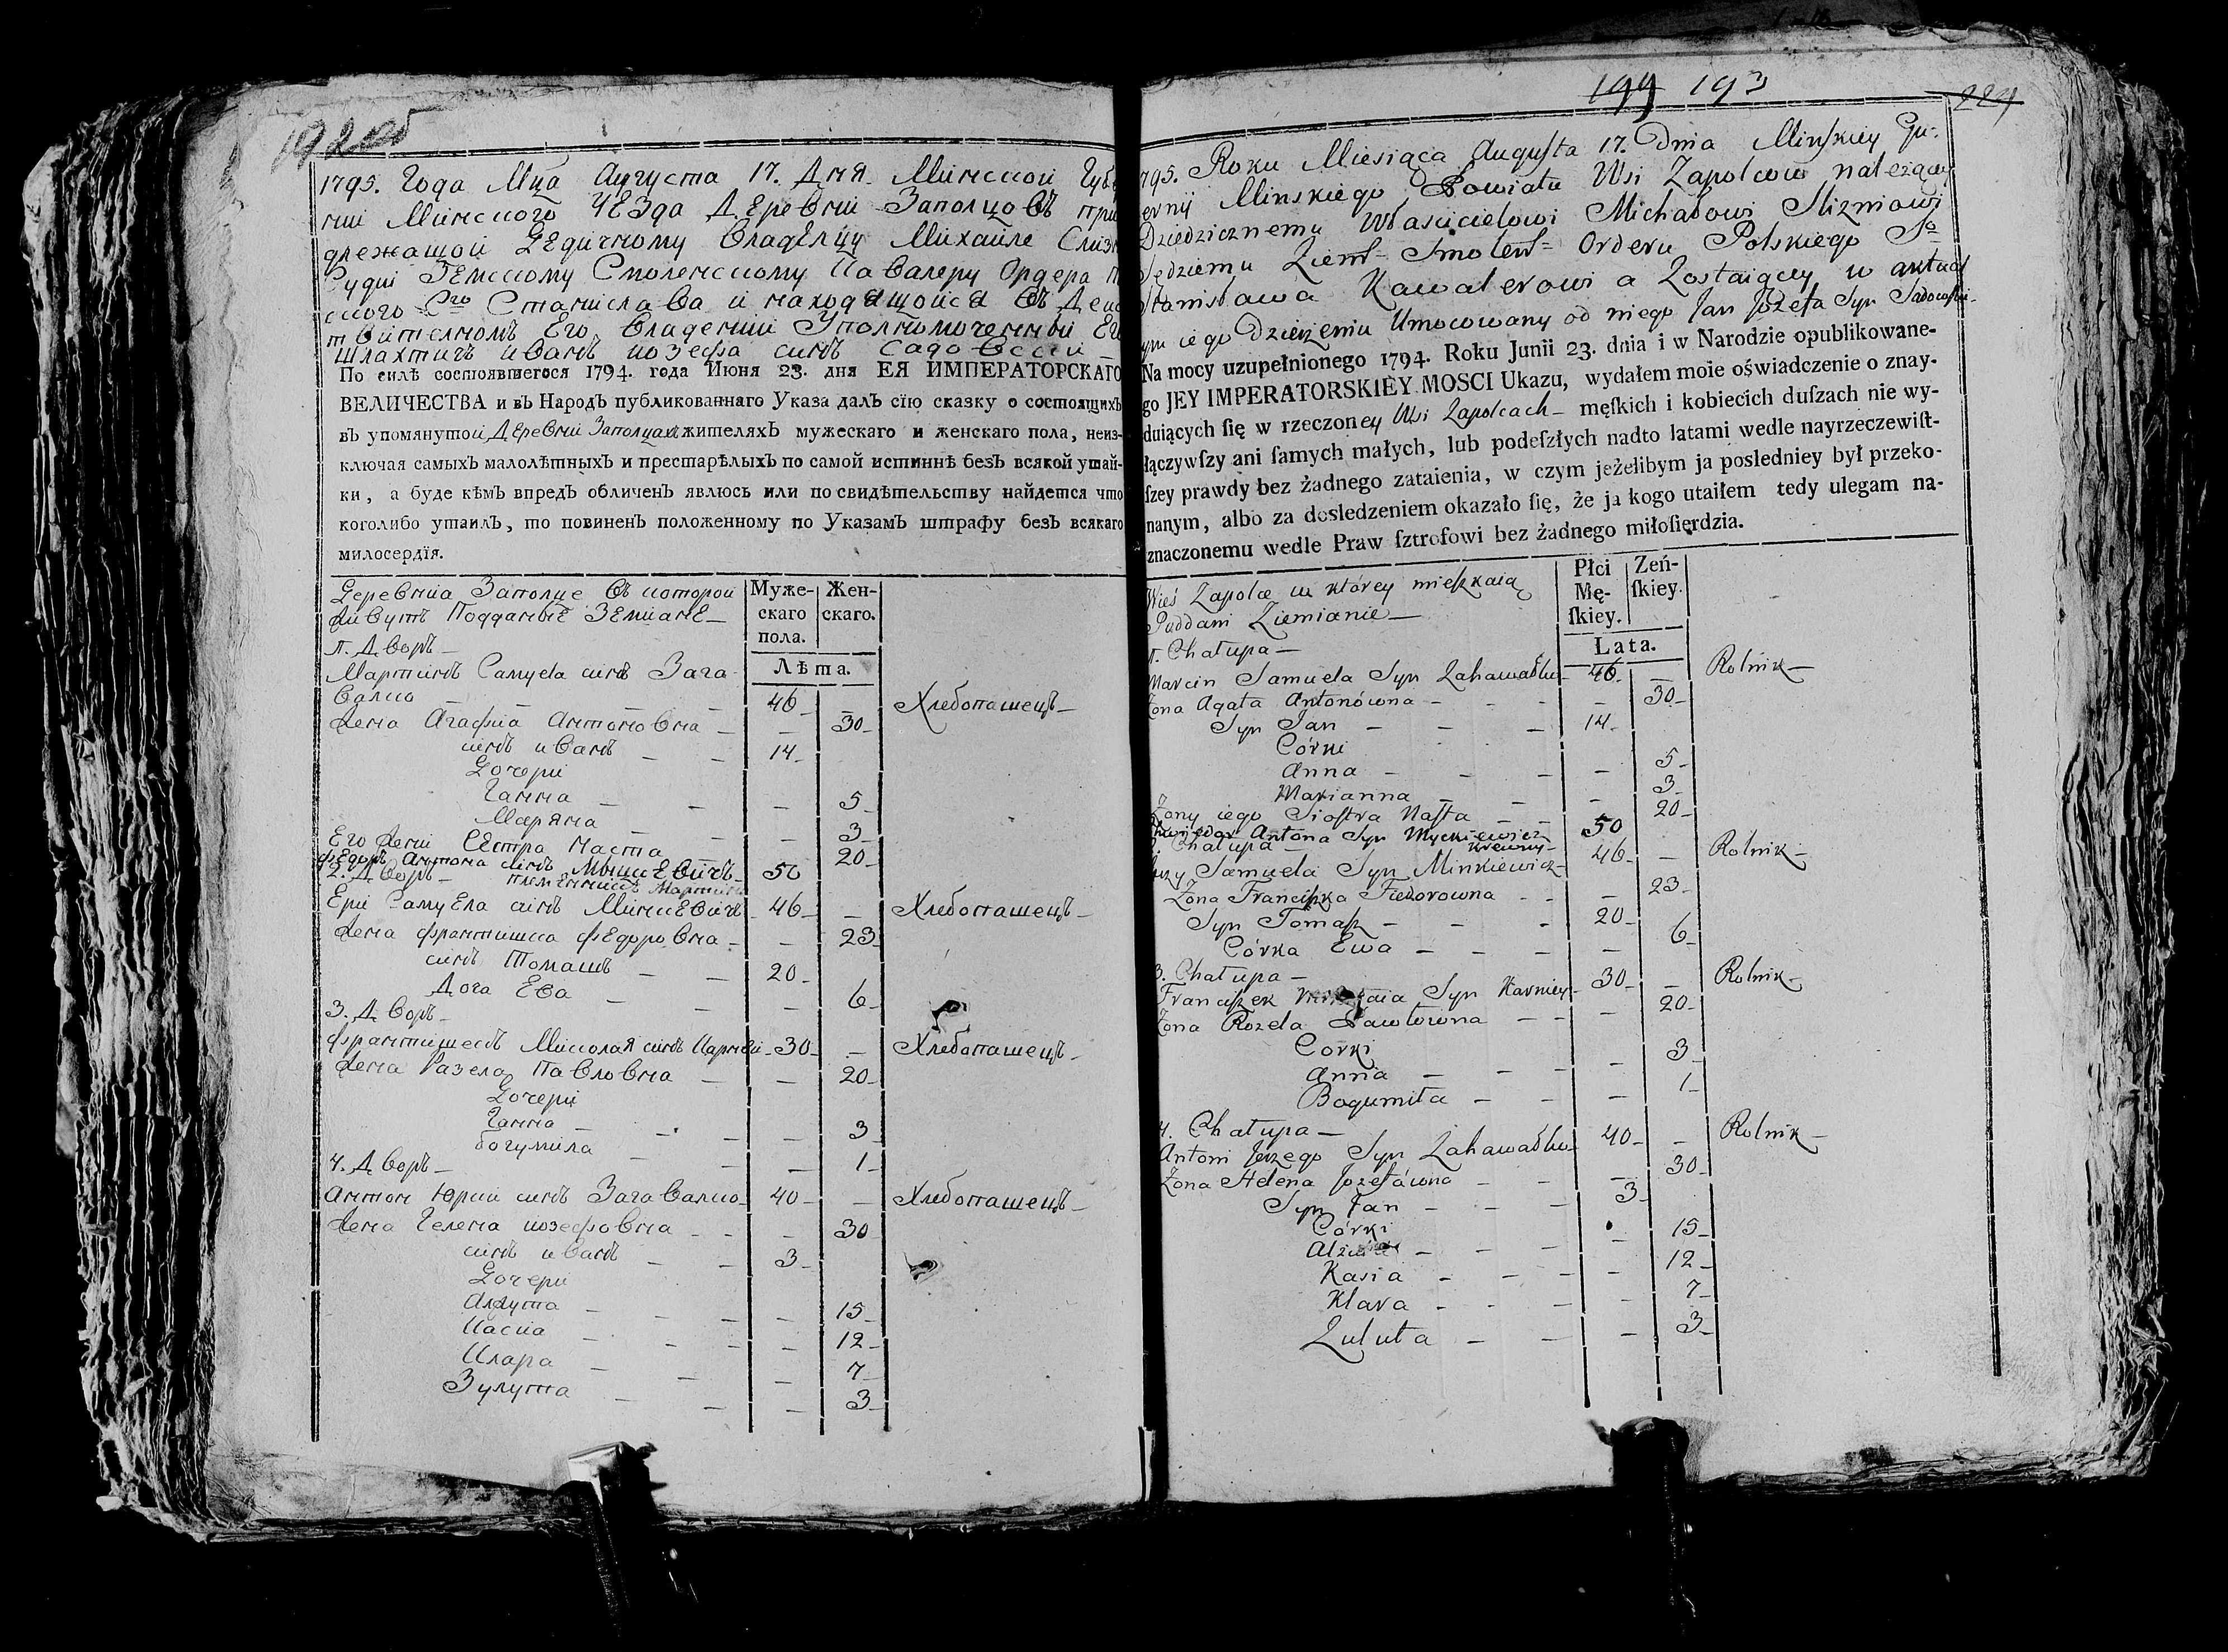 192 об
1795. Года Мца Августа 17. Дня Минской Губе
нии Минского УЕЗда ДЕревни Заполцовъ при
длежащой Дедичному владелцу Михайле Слизн
Судiи ЗЕмскому Смоленскому Кавалеру Ордера П
ского Сго Станислава и находящойся въ Дейс
твителномъ Его владении Уполномоченный Его
шлахтичъ иванъ иозефа синъ Садовский
По силѣ состоявшегося 1794. года Июня 23. дня ЕЯ ИМПЕРАТОРСКАГО
ВЕЛИЧЕСТВА и въ Народъ публикованнаго Указа далъ сїю сказку о состоящихъ
въ упомянутой ДЕревни Заполцахъ жителяхъ мужескаго и женскаго пола, неиз-
ключая самыхъ малолѣтныхъ и престарѣлыхъ по самой истиннѣ безъ всякой утай-
ки, а буде кѣмъ впредъ обличенъ явлюсь или по свидѣтельству найдется что
коголибо утаилъ, то повиненъ положенному по Указамъ штрафу безъ всякаго
милосердїя.
Деревниа Заполце въ которой
живутъ Подданые ЗЕмианЕ
Муже-скаго пола. Жен-скаго.
Лѣта.
1. Дворъ
Мартинъ Самуеla синъ Зага-
валко 46 Хлебопашецъ
жена Агафиа Антоновна 30
синъ иванъ 14
Дочери
Ганна 5
Маряна 3
Его жени сестра Наста 20
фЕдоръ Антона синъ МыцкЕвичъ 50
2. Дворъ племенникъ
Ери СамуЕла синъ МинкЕвичъ 46 Хлебопашецъ
жена франтишка фЕдоровна 23
синъ Томашъ 20
Доча Ева 6
3. Дворъ
франтишекъ Миколая синъ Карней 30 Хлебопашецъ
жена Разела Павловна 20
Дочери
Ганна 3
богумила 1
4. Дворъ
Антон Юрий синъ Загавалко 40 Хлебопашецъ
жена Гелена иозефовна 30
синъ иванъ 3
Дочери
Алжута 15
Касиа 12
Клара 7
Зулута 3
199 193
224
795. Roku Miesiąca Augusta 17. Dnia Minskiey Gu-
ernij Minskiego Powiatu Wsi Zapolcow należącey
Dziedzicznemu Właścicielowi Michałowi Slizniowi
Sędziemu Ziem- Smolens= Orderu Polskiego So
Stanisława Kawalerowi a Zostaiącey w aktual
ym iego Dzierzeniu Umocowany od niego Jan Jozefa Syn Sadowski
Na mocy uzupełnionego 1794. Roku Junii 23. dnia i w Narodzie opublikowane-
go JEY IMPERATORSKIEY MOSCI Ukazu, wydałem moie oświadczenie o znay-
duiących ſię w rzeczoney Wsi Zapolcach męſkich i kobiecich duſzach nie wy-
łączywſzy ani ſamych małych, lub podeſzłych nadto latami wedle nayrzeczewiſt-
ſzey prawdy bez żadnego zataienia, w czym jeżelibym ja posledniey był przeko-
nanym, albo za dosledzeniem okazało ſię, że ja kogo utaiłem tedy ulegam na-
znaczonemu wedle Praw ſztrofowi bez żadnego miłoſierdzia.
Wieś Zapolce w którey mieszkaią
Puddani Ziemianie
Płci Mę-ſkiey. Zeń-ſkiey.
Lata.
1. Chałupa
Marcin Samuela Syn Zahawałko 46 Rolnik
Zona Agata Antonówna 30
Syn Jan 14
Córki
Anna 5
Marianna 3
Zony iego Siostra Nasta 20
Chwiedor Antona Syn Myckiewicz 50
2. Chałupa krewny
Jerzy Samuela Syn Minkiewicz 46 Rolnik
Zona Franciszka Fiedorowna 23
Syn Tomasz 20
Córka Ewa 6
3. Chałupa
Franciszek Mikołaia Syn Karniey 30 Rolnik
Zona Rozela Pawłowna 20
Corki
Anna 3
Bogumiła 1
4. Chałupa
Antoni Jerzego Syn Zahawałko 40 Rolnik
Zona Helena Jozefówna 30
Syn Jan 3
Córki
15
Kasia 12
Klara 7
Zuluta 3